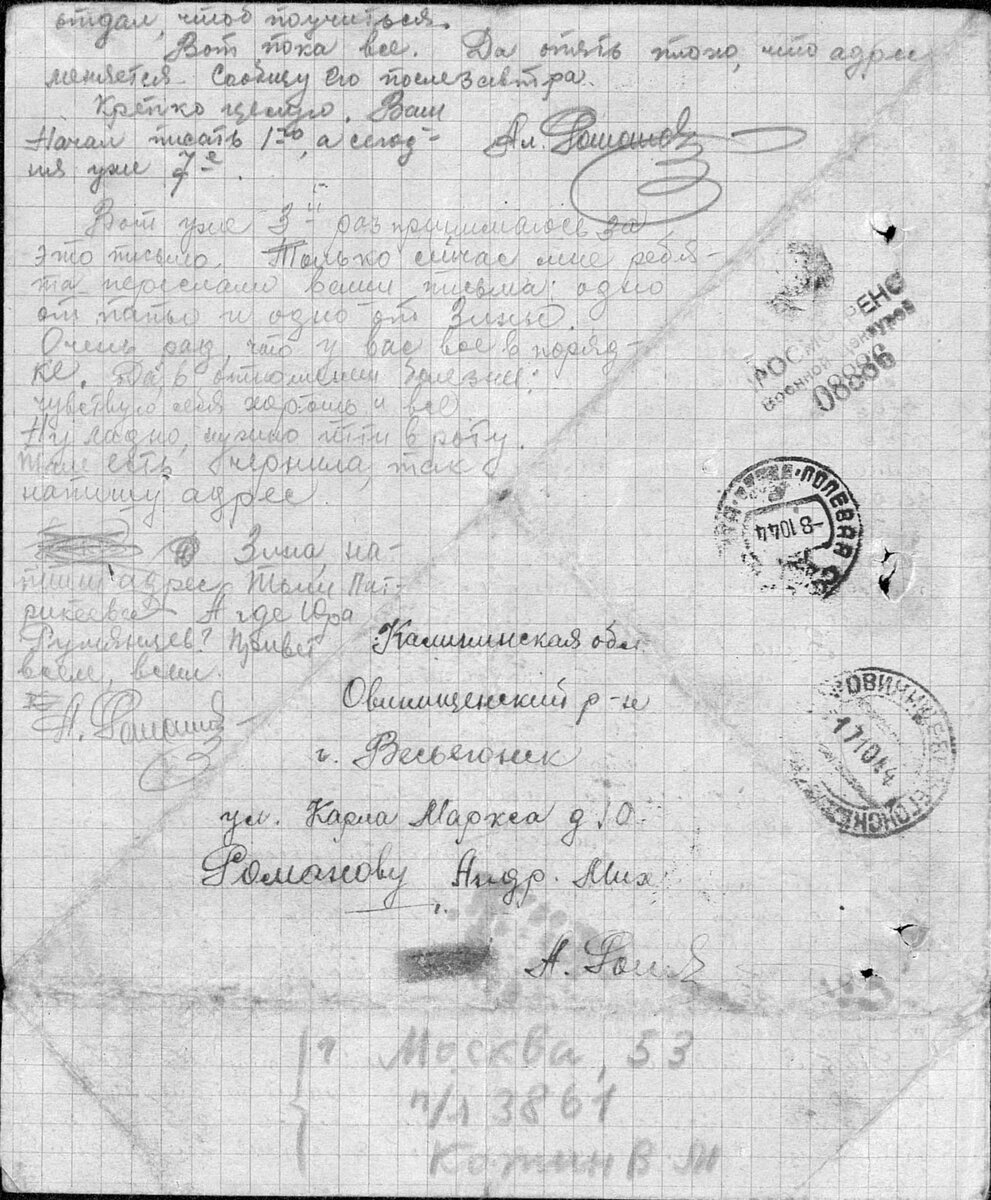 отдал, чтоб поучиться.
Вот пока все. Да опять плохо, что адрес
меняется. Сообщу его послезавтра.
Крепко целую. Ваш
Начал писать 1го, а сегод-
Ал. Романов
ня уже 7е.
Вот уже 3й раз принимаюсь за
это письмо. Только сейчас мне ребя-
та переслали ваши письма: одно
от папы и одно от Зины.
Очень рад, что у вас все в поряд-
ке. Да в отношении болезни:
чувствую себя хорошо и все
Ну ладно, нужно идти в роту.
Там есть чернила так
напишу адрес
Зина, на-
пиши адрес Тони Пат-
рикеевой А где Юра
Румянцев? Привет
всем, всем.
А. Романов
ПРОСМОТРЕНО
Военной Цензурой
08886
ПОЛЕВАЯ
-8 10 44
Калининская обл.
Овинищенский р-н
г. Весьегонск
ул. Карла Маркса д 10
Романову Андр. Мих
17 10 44
А. Ром
г. Москва, 53
п/я 3861
Кожин В М